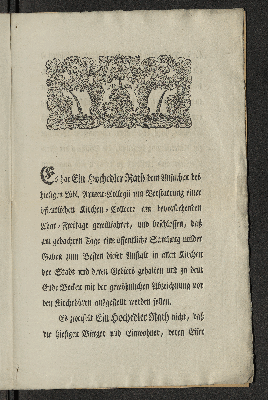 Es hat Ein Hochedler Rath dem Ansuchen des
hiesigen Löbl. Armen-Collegii um Verstattung einer
öffentlichen Kirchen-Collecte am bevorstehenden
Char-Freytage gewillfahret, und beschlossen, daß
am gedachten Tage eine öffentliche Sammlung milder
Gaben zum Besten dieser Anstalt in allen Kirchen
der Stadt und deren Gebiets gehalten und zu dem
Ende Becken mit der gewöhnlichen Abzeichnung vor
den Kirchthüren ausgestellt werden sollen.
Es zweifelt Ein Hochedler Rath nicht, daß
die hiesigen Bürger und Einwohner, deren Eifer